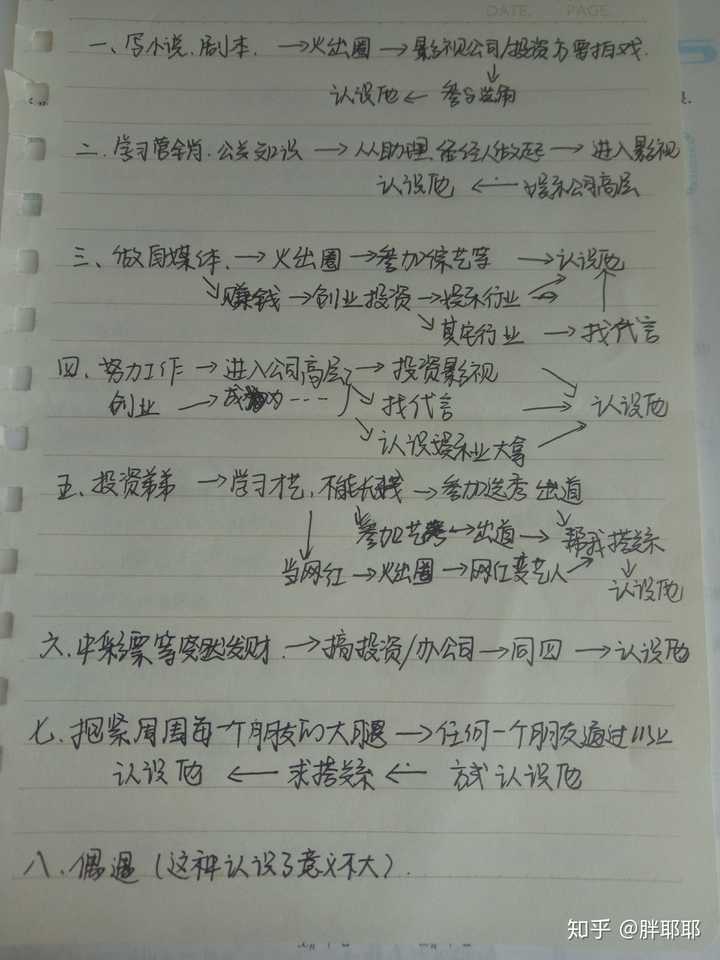 DATE. PAGE
一、写小说、剧本. → 火出圈 → 影视公司/投资方要拍戏.
认识他 ← 参与选角
二、学习营销.公关知识 → 从助理、经纪人做起 → 进入影视
认识他 ← 娱乐公司高层
三、做自媒体、→ 火出圈 → 参加综艺等 → 认识他
↘ 赚钱 → 创业投资 → 娱乐行业
↘ 其它行业 → 找代言
四、努力工作 → 进入公司高层 → 投资影视
创业 → 成为 ---- 找代言 → 认识他
↘ 认识娱乐业大拿
五、投资弟弟 → 学习才艺, → 参加选秀 出道
参加艺考 → 出道 → 帮我搭关系
当网红 → 火出圈 → 网红变艺人
认识他
六、中彩票等突然发财. → 搞投资/办公司 → 同四 → 认识他
七、抱紧周围每一个朋友的大腿 → 任何一个朋友通过以上
认识他 ← 求搭关系 ← 方式认识他
八、偶遇(这种认识了意义不大).
知乎 @胖耶耶